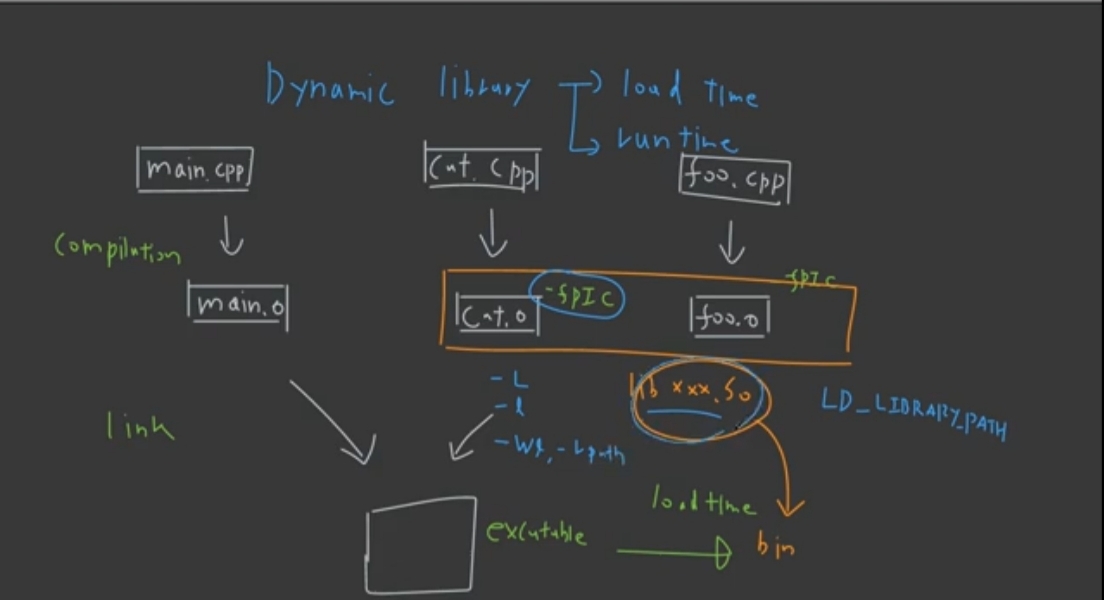 Dynamic library → load time
→ runtime
main.cpp
cat.cpp
foo.cpp
compilation
main.o
cat.o
-fPIC
foo.o
-fPIC
-L
-l
-Wl,-rpath
lib xxx.so
LD_LIBRARY_PATH
link
excutable
load time
bin